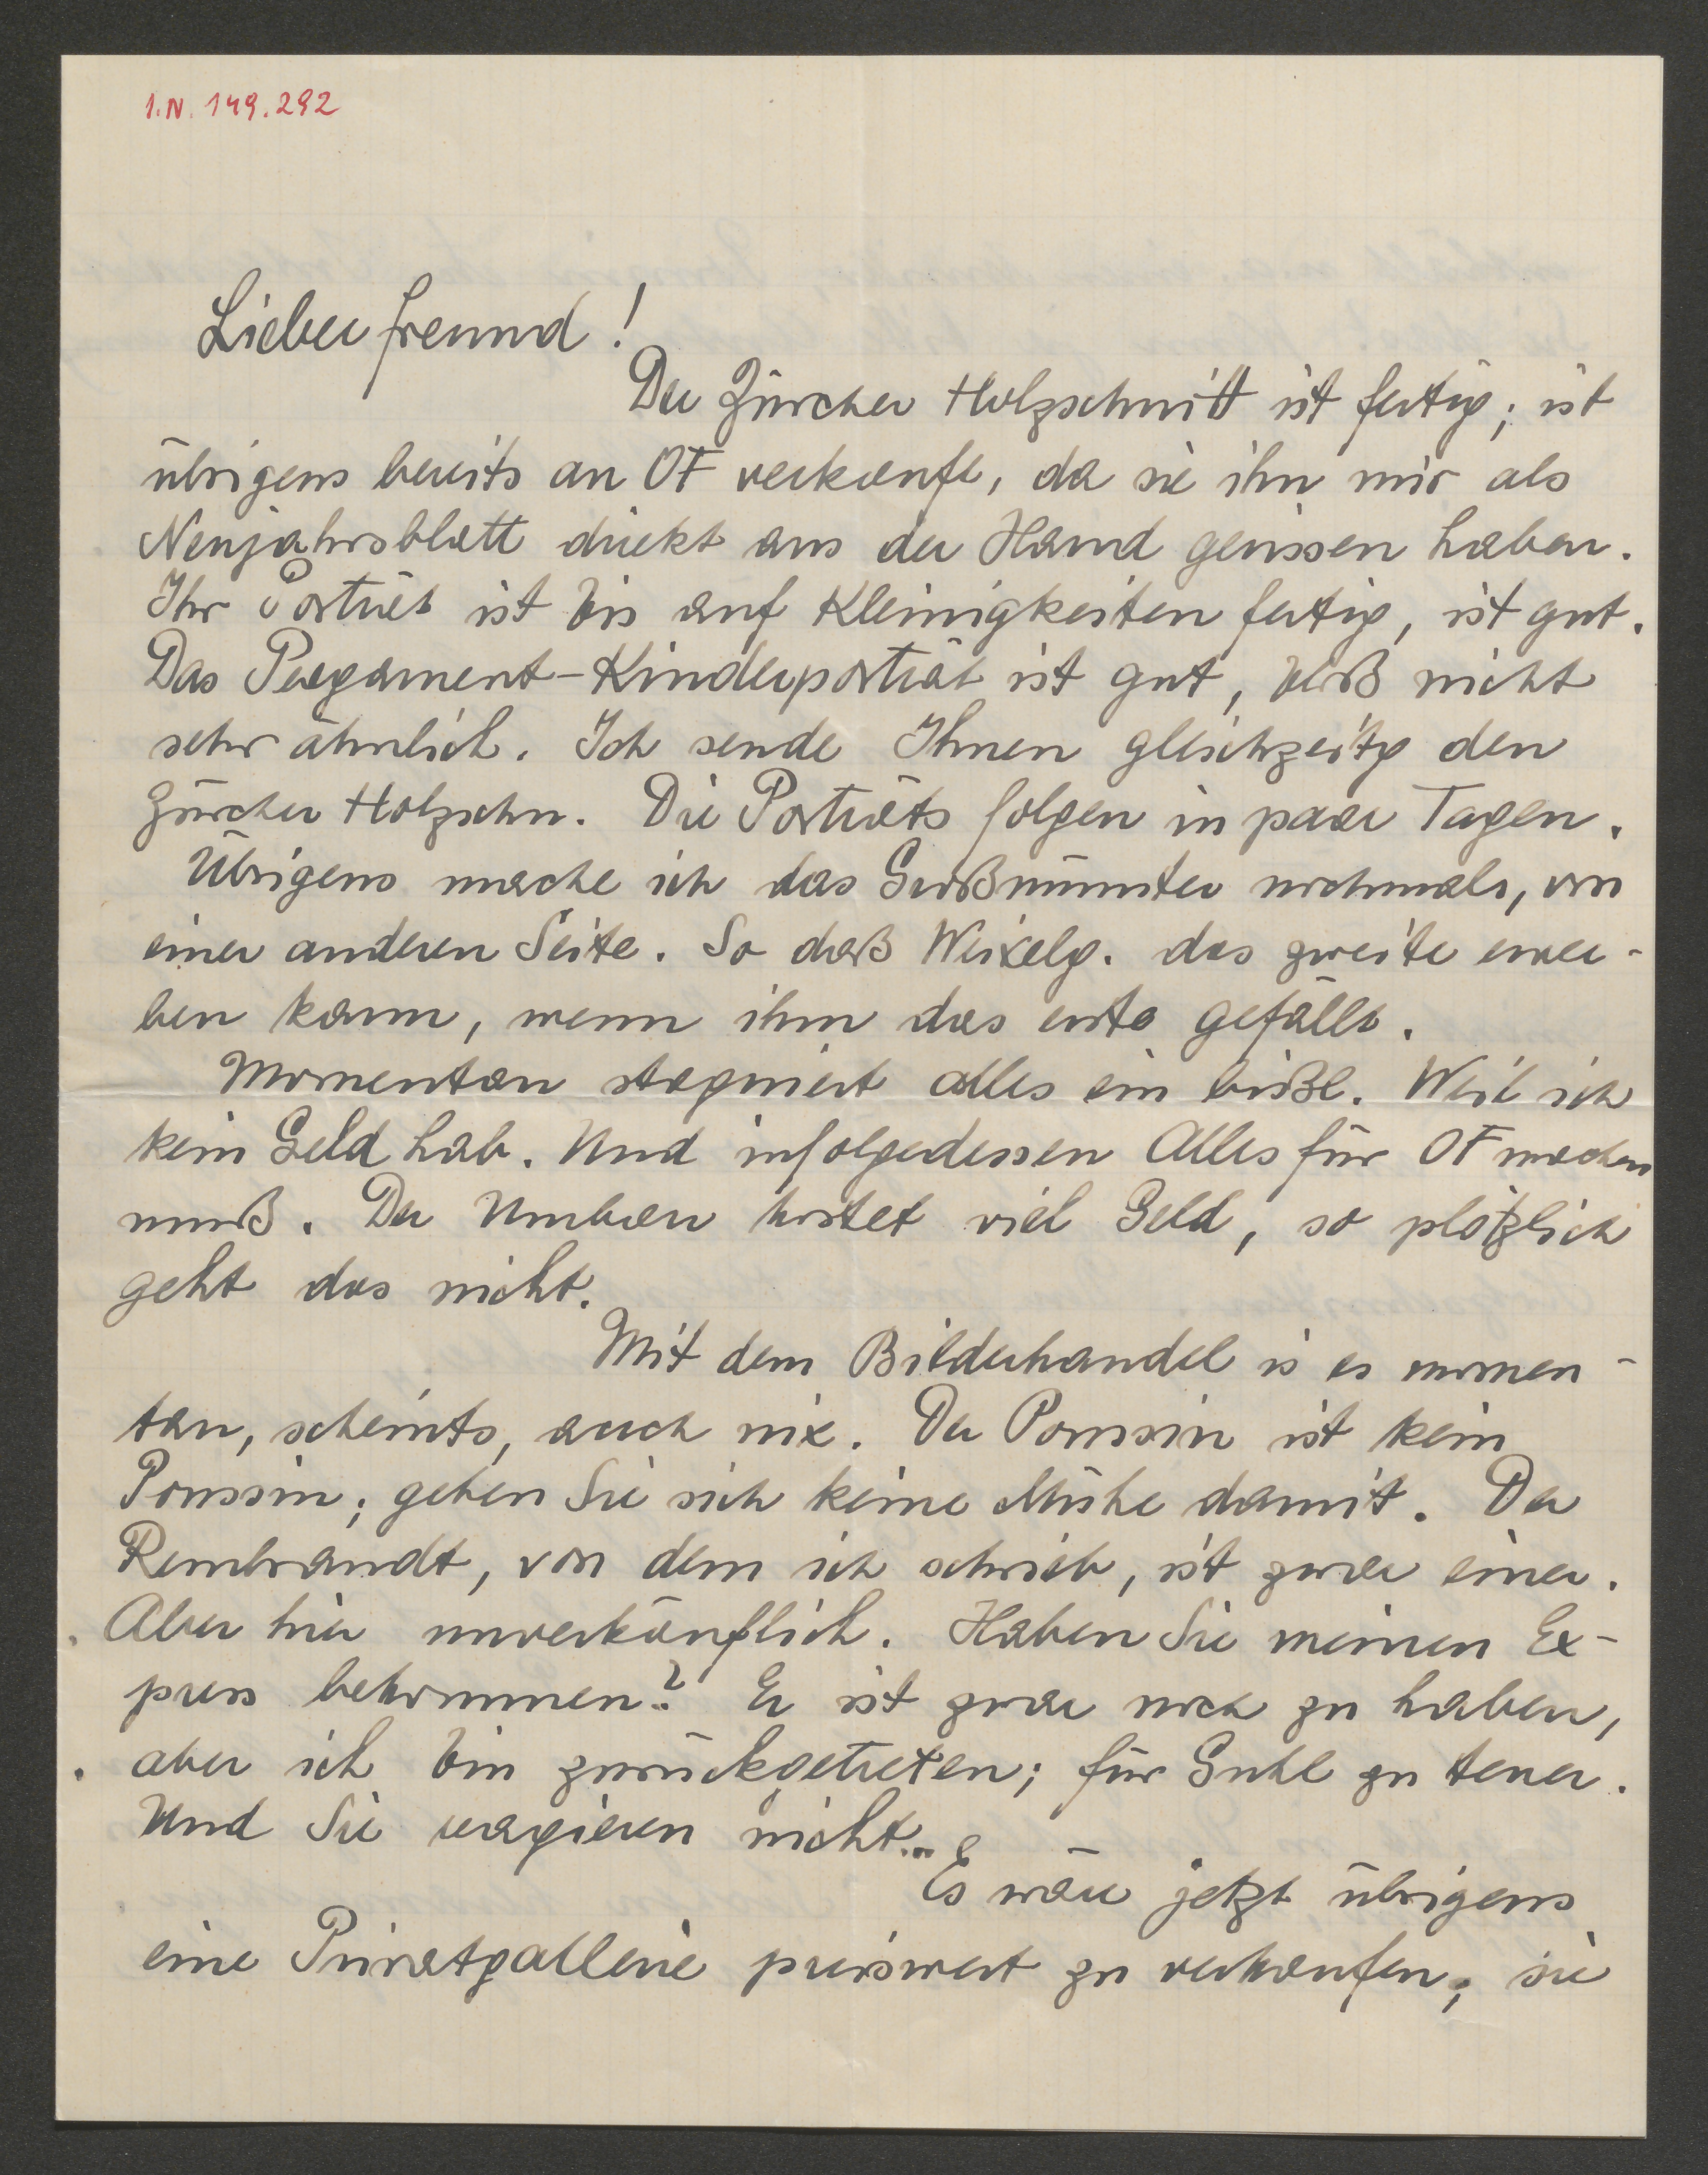 I.N. 149.292
Lieber Freund!
Der Zürcher Holzschnitt ist fertig; ist
übrigens bereits an OF verkauft, da sie ihn mir als
Neujahrsblatt direkt aus der Hand gerissen haben.
Ihr Porträt ist bis auf Kleinigkeiten fertig, ist gut.
Das Pergament-Kinderporträt ist gut, bloß nicht
sehr ähnlich. Ich sende Ihnen gleichzeitg den
Zürcher Holzschn. Die Porträts folgen in paar Tagen.
Übrigens mache ich das Großmünster nochmals, von
einer anderen Seite. So daß Weixelg. das zweite erwer-
ben kann, wenn ihm das erste gefällt.
Momentan stagniert alles ein bißl. Weil ich
kein Geld hab. Und infolgedessen Alles für OF machen
muß. Der Umbau kostet viel Geld, so plötzlich
geht das nicht.
Mit dem Bilderhandel is es momen-
tan, scheints, auch nix. Der Poussin ist kein
Poussin; geben Sie sich keine Mühe damit. Der
Rembrandt, von dem ich schrieb, ist zwar einer.
Aber hier unverkäuflich. Haben Sie meinen Ex-
press bekommen? Er ist zwar noch zu haben,
aber ich bin zurückgetreten; für Guhl zu teuer.
Und Sie reagieren nicht...
Es wäre jetzt übrigens
eine Privatgallerie preiswert zu verkaufen; sie